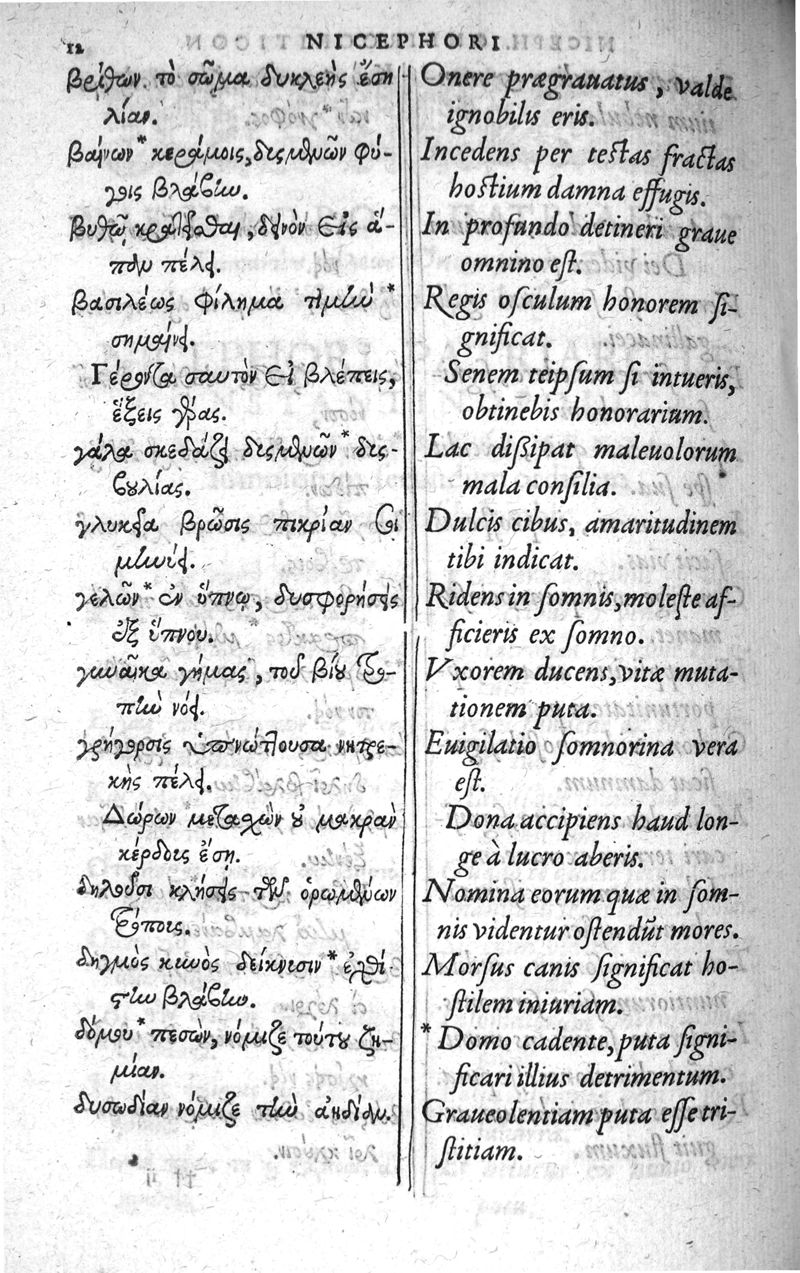 12
NICEPHORI
βρίθων τὸ σῶμα δυσκλεὴς ἔση
λίαν.
βαίνων* κεράμοις, δυσμενῶν φύ-
γοις βλάβην.
βυθῷ κρατεῖσθαι, δεινὸν εἰς ἅ-
παν πέλει.
βασιλέως φίλημα τιμὴν*
σημαίνει.
Γέροντα σαυτὸν εἰ βλέπεις,
ἕξεις γέρας.
γάλα σκεδάζει δυσμενῶν* δυσ-
βουλίας.
γλυκεῖα βρῶσις πικρίαν σοι
μηνύει.
γελῶν* ἐν ὕπνῳ, δυσφορήσεις
ἐξ ὕπνου.
γυναῖκα γήμας, τοῦ βίου τρο-
πὴν νόει.
γρήγορσις ὑπνώττουσα νητρε-
κὴς πέλει.
Δώρων μεταχὼν οὐ μακρὰν
κέρδους ἔση.
δηλοῦσι κλήσεις τῶν ὁρωμένων
τρόποις.
δηγμὸς κυνὸς δείκνυσιν* ἐχθί-
στην βλάβην.
δόμου* πεσὼν, νόμιζε τούτου ζη-
μίαν.
δυσωδίαν νόμιζε τὴν ἀηδίαν.
Onere prægrauatus, valde
ignobilis eris.
Incedens per testas fractas
hostium damna effugis.
In profundo detineri graue
omnino est.
Regis osculum honorem si-
gnificat.
Senem teipsum si intueris,
obtinebis honorarium.
Lac dißipat maleuolorum
mala consilia.
Dulcis cibus, amaritudinem
tibi indicat.
Ridens in somnis, moleste af-
ficieris ex somno.
Vxorem ducens, vitæ muta-
tionem puta.
Euigilatio somnorina vera
est.
Dona accipiens haud lon-
ge à lucro aberis.
Nomina eorum quæ in som-
nis videntur ostendūt mores.
Morsus canis significat ho-
stilem iniuriam.
* Domo cadente, puta signi-
ficari illius detrimentum.
Graueolentiam puta esse tri-
stitiam.